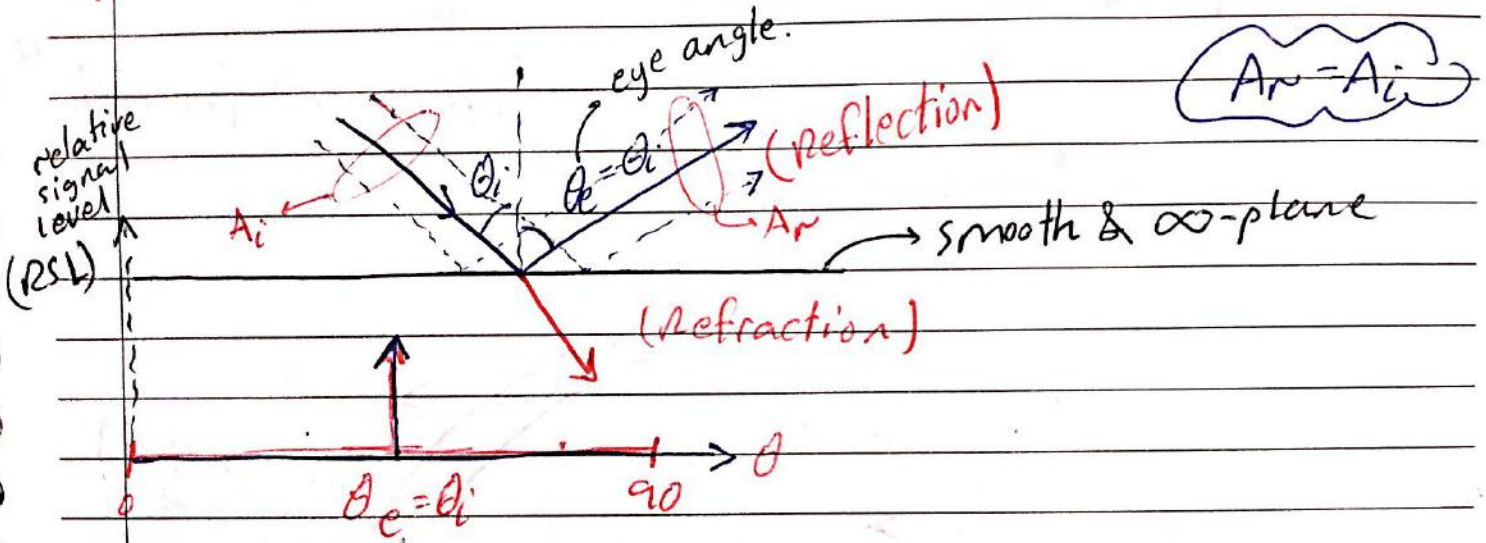 eye angle.
Ar = Ai
relative
signal
level
(RSL)
θi
θe = θi
(Reflection)
Ai
Ar
smooth & ∞-plane
(Refraction)
θ
0
θe = θi
90